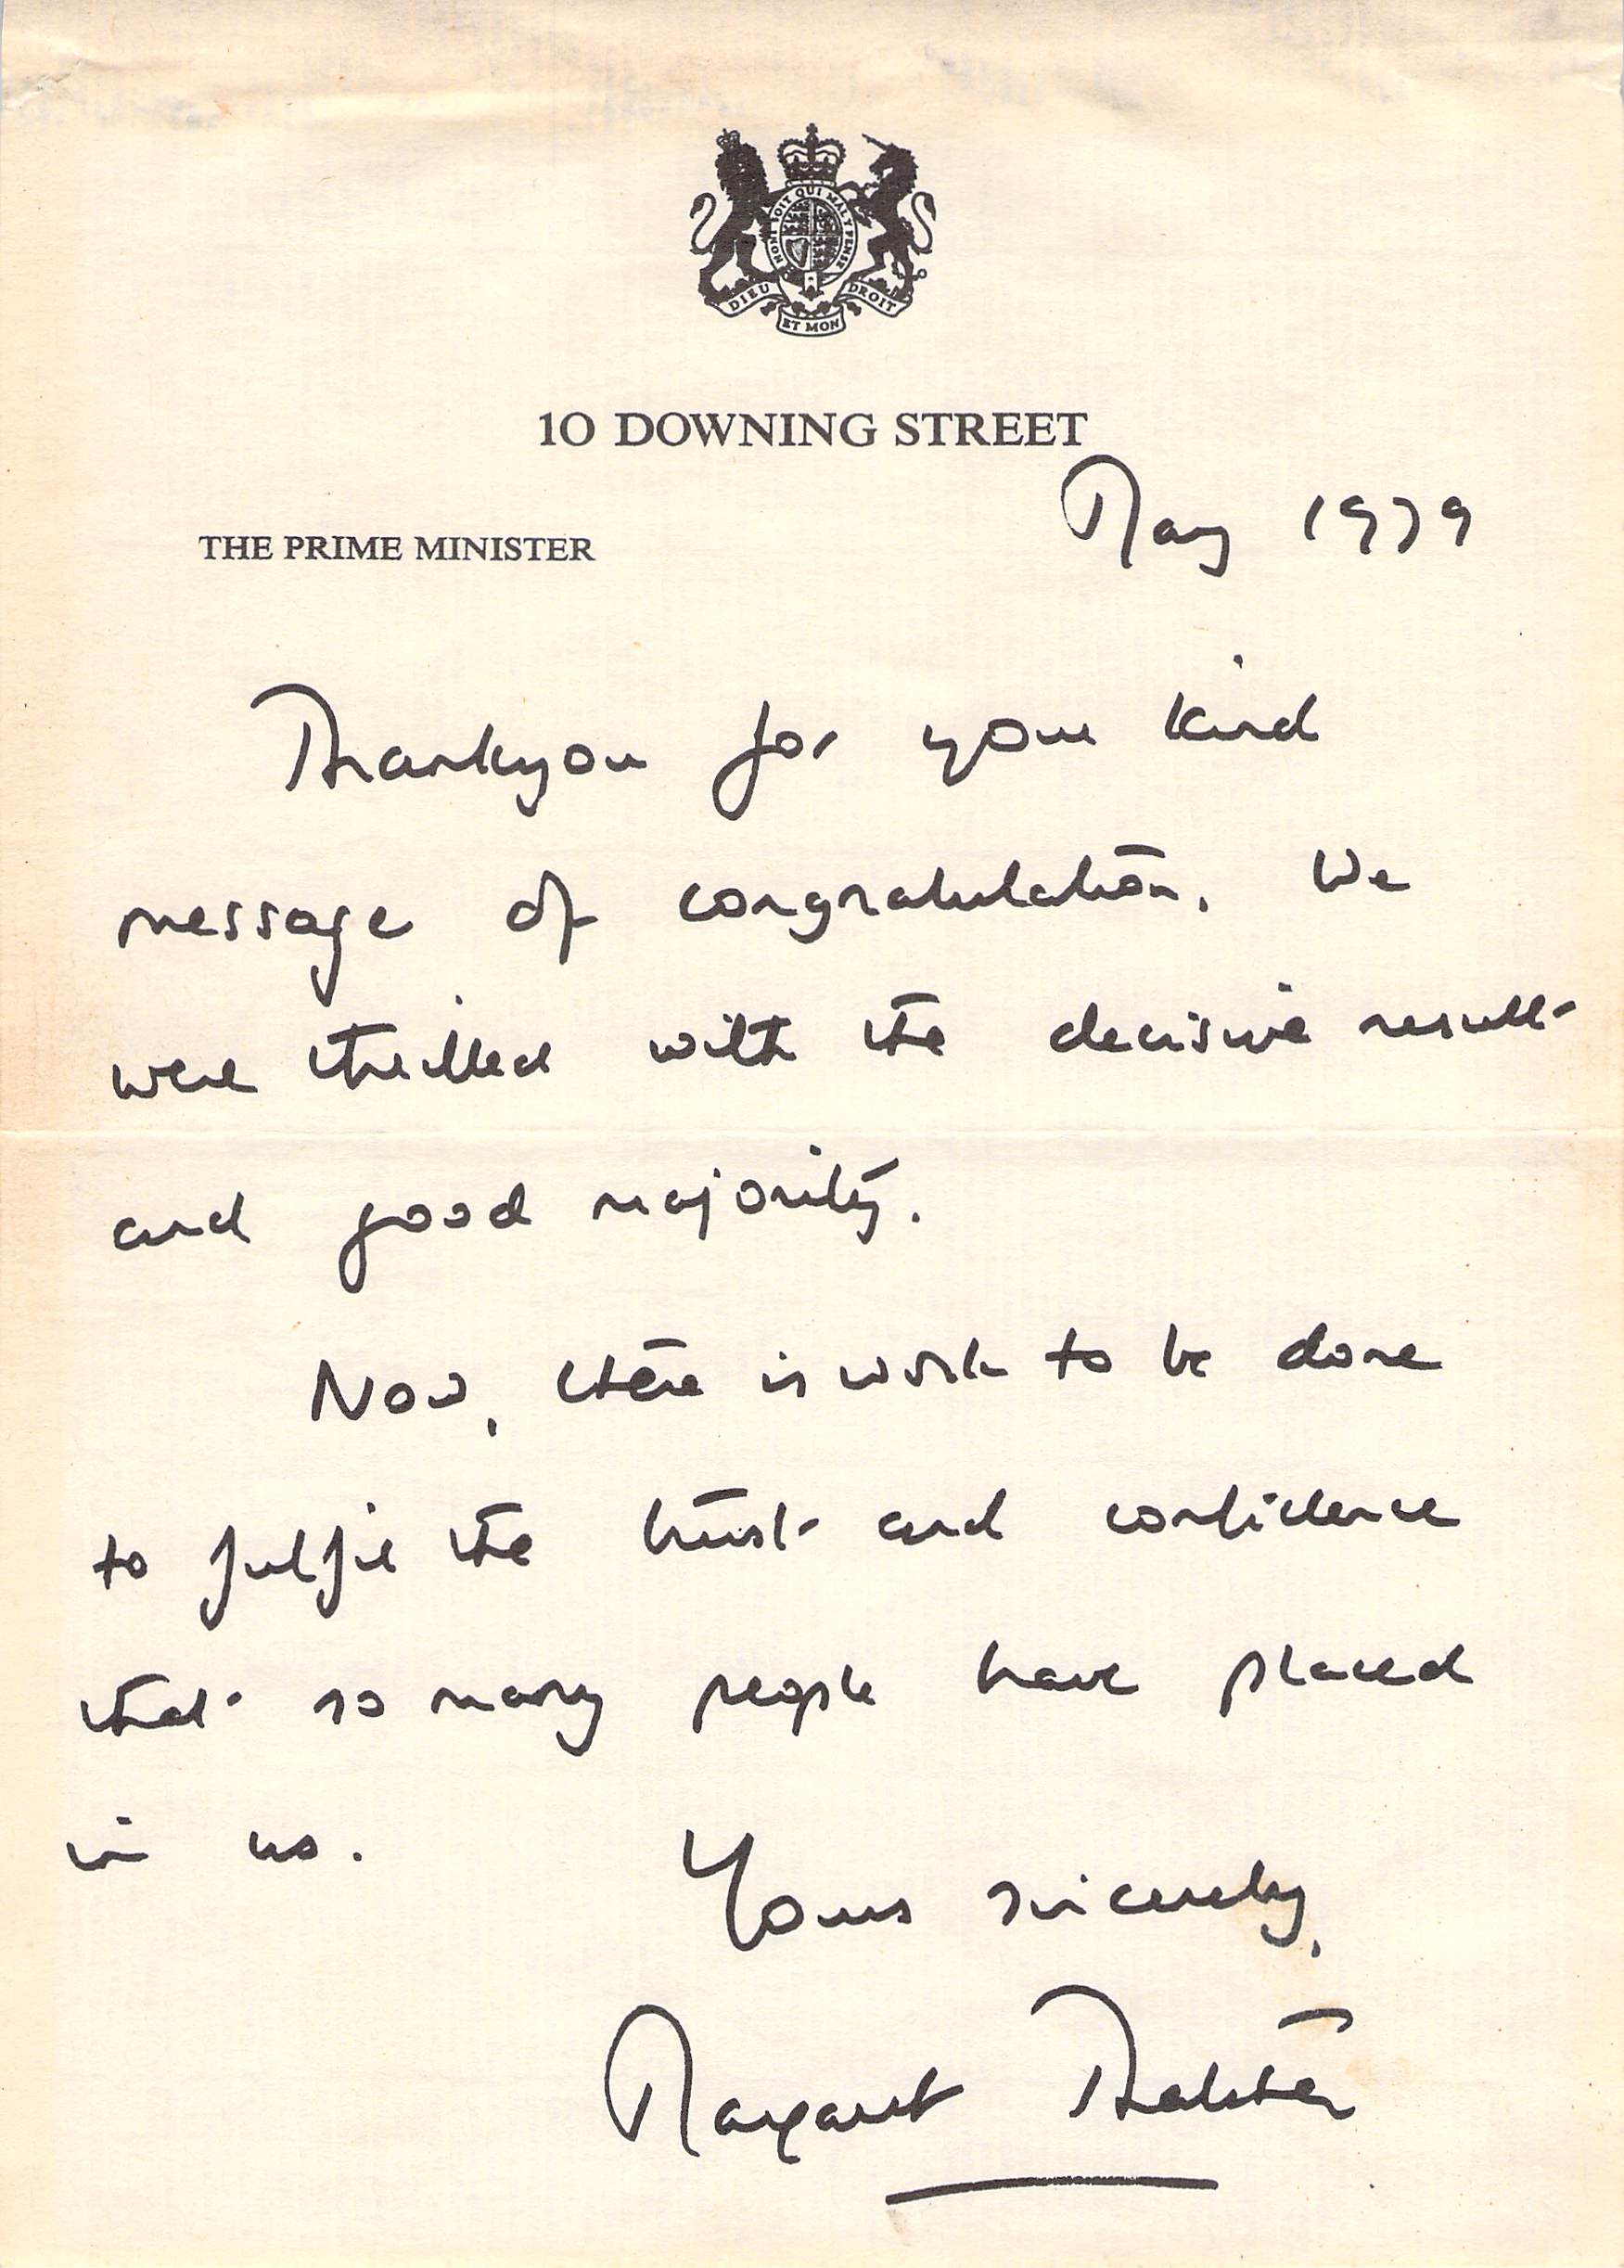 HONI SOIT QUI MAL Y PENSE
DIEU ET MON DROIT
10 DOWNING STREET
May 1979
THE PRIME MINISTER
Thankyou for your kind
message of congratulation. We
were thrilled with the decisive result
and good majority.
Now, there is work to be done
to fulfil the trust and confidence
that so many people have placed
in us.
Yours sincerely,
Margaret Thatcher